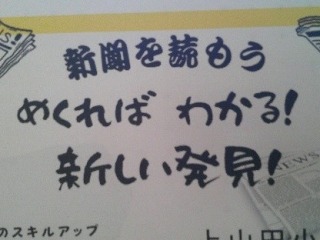 新聞を読もう
めくれば わかる!
新しい発見!
NEWS
のスキルアップ
上山田小